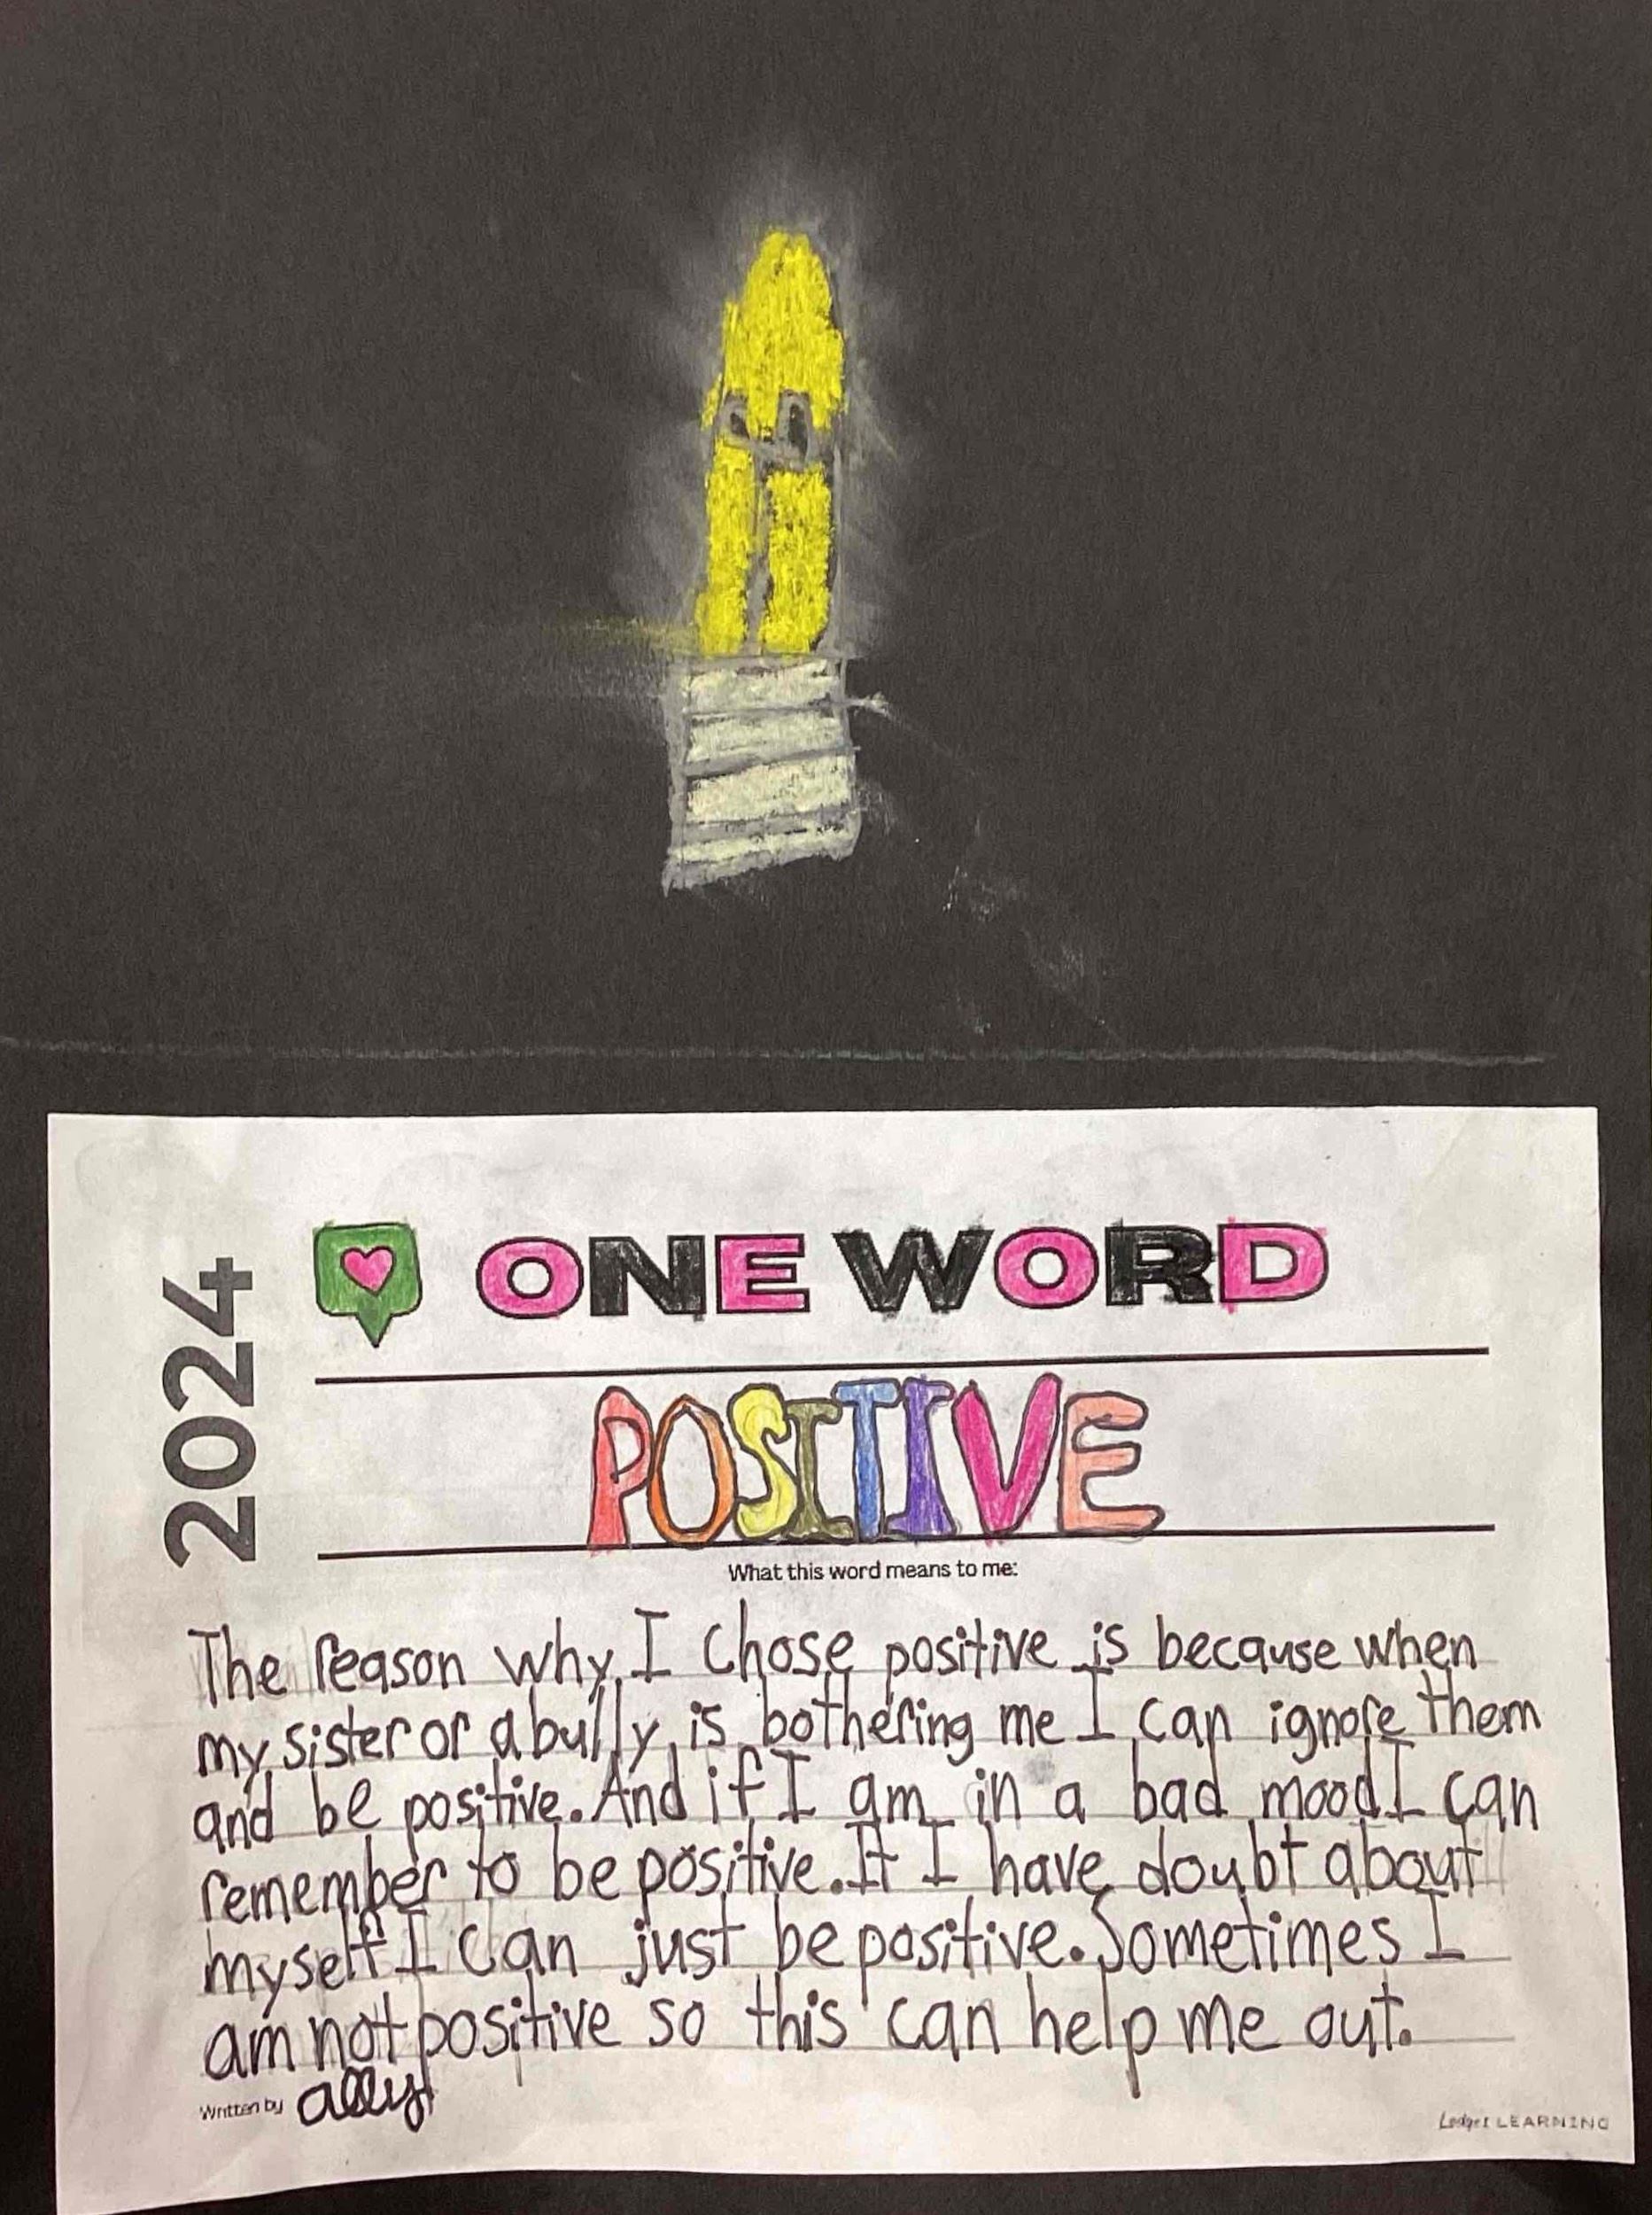 2024
ONE WORD
POSITIVE
What this word means to me:
The reason why I chose positive is because when
my sister or a bully is bothering me I can ignore them
and be positive. And if I am in a bad mood I can
remember to be positive. If I have doubt about
myself I can just be positive. Sometimes I
am not positive so this can help me out.
Written by ally
Ledger LEARNING